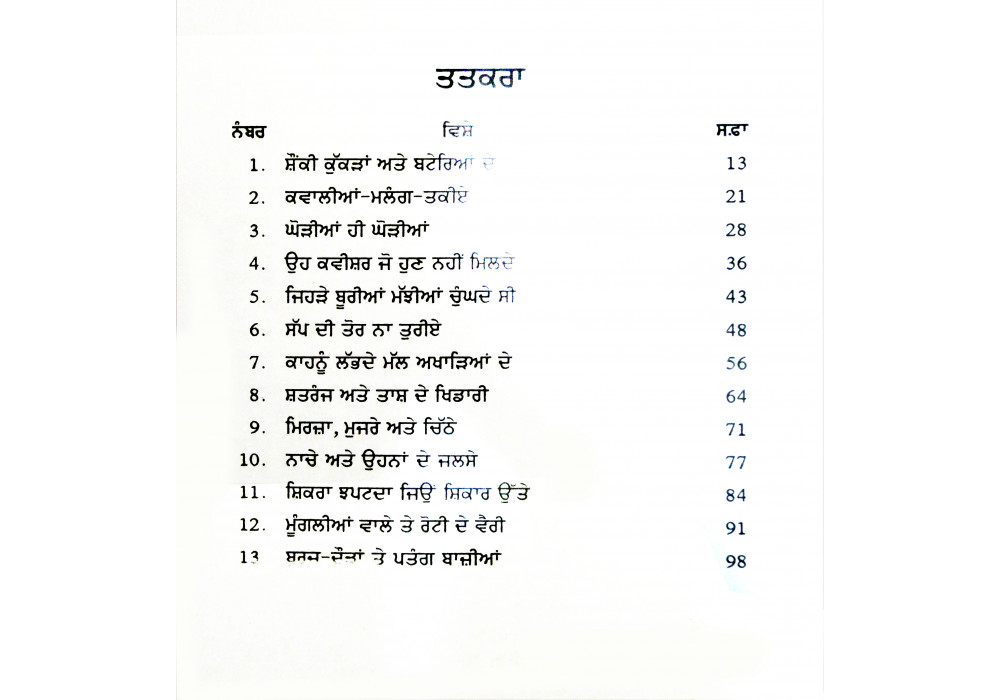 ਤਤਕਰਾ
ਨੰਬਰ ਵਿਸ਼ੇ ਸ.ਫਾ
1. ਸ਼ੌਂਕੀ ਕੁੱਕੜਾਂ ਅਤੇ ਬਟੇਰਿਆਂ ਦੇ 13
2. ਕਵਾਲੀਆਂ-ਮਲੰਗ-ਤਕੀਏ 21
3. ਘੋੜੀਆਂ ਹੀ ਘੋੜੀਆਂ 28
4. ਉਹ ਕਵੀਸ਼ਰ ਜੋ ਹੁਣ ਨਹੀਂ ਮਿਲਦੇ 36
5. ਜਿਹੜੇ ਬੂਰੀਆਂ ਮੱਝੀਆਂ ਚੁੰਘਦੇ ਸੀ 43
6. ਸੱਪ ਦੀ ਤੋਰ ਨਾ ਤੁਰੀਏ 48
7. ਕਾਹਨੂੰ ਲੱਭਦੇ ਮੱਲ ਅਖਾੜਿਆਂ ਦੇ 56
8. ਸ਼ਤਰੰਜ ਅਤੇ ਤਾਸ਼ ਦੇ ਖਿਡਾਰੀ 64
9. ਮਿਰਜ਼ਾ, ਮੁਜਰੇ ਅਤੇ ਚਿੱਠੇ 71
10. ਨਾਚੇ ਅਤੇ ਉਹਨਾਂ ਦੇ ਜਲਸੇ 77
11. ਸ਼ਿਕਰਾ ਝਪਟਦਾ ਜਿਉਂ ਸ਼ਿਕਾਰ ਉੱਤੇ 84
12. ਮੂੰਗਲੀਆਂ ਵਾਲੇ ਤੇ ਰੋਟੀ ਦੇ ਵੈਰੀ 91
13 ਤੇ ਪਤੰਗ ਬਾਜ਼ੀਆਂ 98